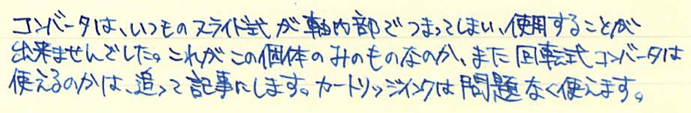 コンバータは、いつものスライド式が軸内部でつまってしまい、使用することが
出来ませんでした。これがこの個体のみのものなのか、また回転式コンバータは
使えるのかは、追って記事にします。カートリッジインクは問題なく使えます。